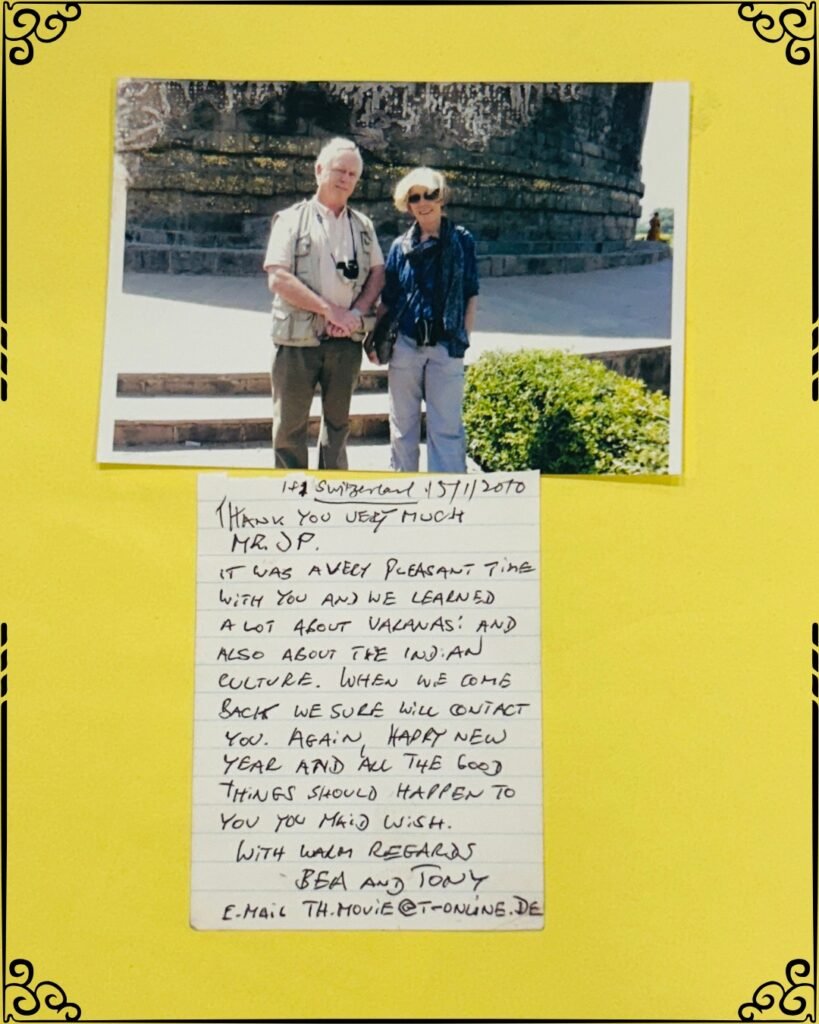 1+1 Switzerland 15/1/2010
THANK YOU VERY MUCH
MR. JP.
IT WAS A VERY PLEASANT TIME
WITH YOU AND WE LEARNED
A LOT ABOUT VARANASI AND
ALSO ABOUT THE INDIAN
CULTURE. WHEN WE COME
BACK WE SURE WILL CONTACT
YOU. AGAIN, HAPPY NEW
YEAR AND ALL THE GOOD
THINGS SHOULD HAPPEN TO
YOU YOU MAID WISH.
WITH WARM REGARDS
BEA AND TONY
E-MAIL TH.MOVIE@T-ONLINE.DE